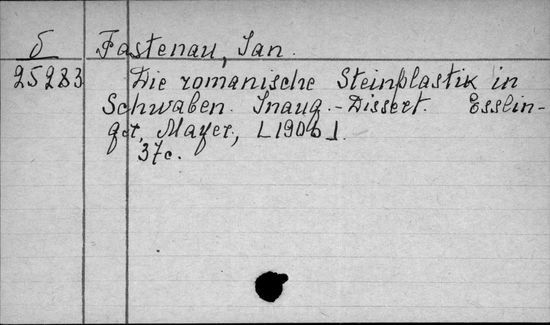 δ Fastenau, Jan.
25283 Die romanische Steinplastik in
Schwaben. Inaug.-Dissert. Esslin-
get, Mayer, [1906].
37c.